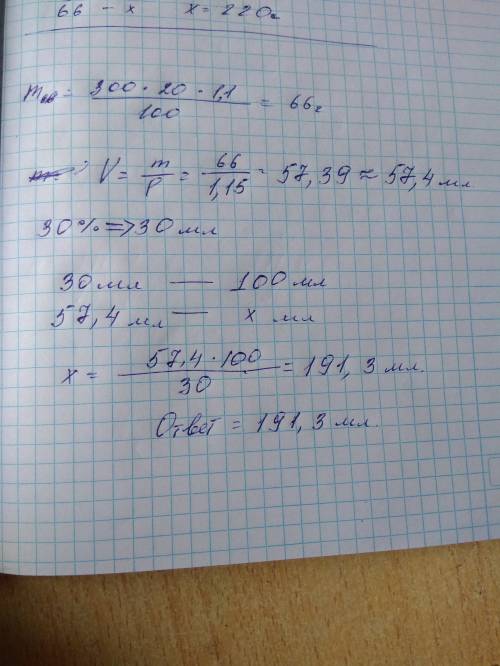 66 – x x = 220г
m = 300 · 20 · 1,1 / 100 = 66г
V = m / ρ = 66 / 1,15 = 57,39 ≈ 57,4 мл
30% => 30 мл
30 мл — 100 мл
57,4 мл — x мл
x = 57,4 · 100 / 30 = 191,3 мл.
Ответ = 191,3 мл.